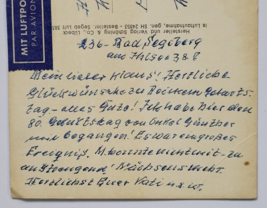 MIT LUFTPOST
PAR AVION
Hersteller und Verlag Schöning & Co., Lübeck
236-Bad Segeberg
am Ihlsee 38 g
Mein lieber Klaus! Herzliche
Glückwünsche zu Deinem Geburts-
tag - alles Gute! Ich habe hier den
80. Geburtstag von Onkel Günther
begangen! Es war ein großes
Ereignis. M. konnte nicht mit - zu
anstrengend! Nächstens mehr.
Herzlichst Euer